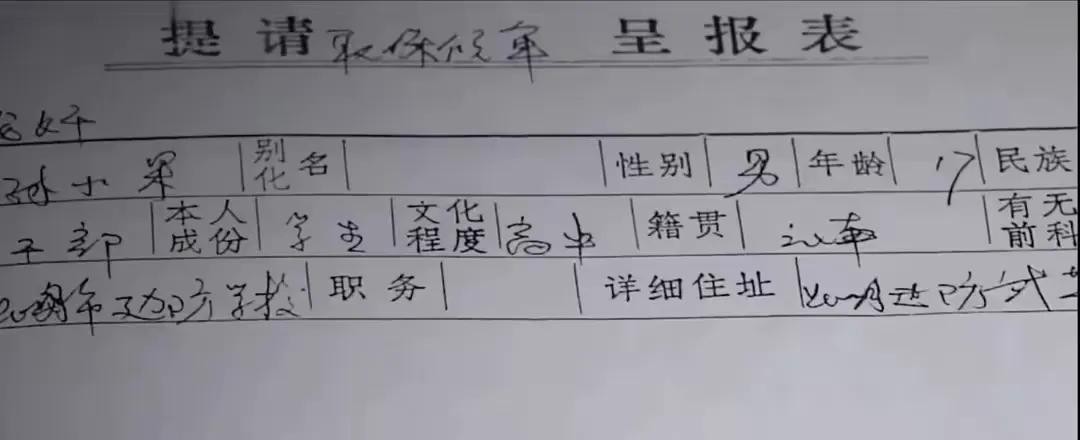 提请取保候审呈报表
孙小果 别化名 性别 男 年龄 17 民族
干部 本人成份 学生 文化程度 高中 籍贯 有无前科
昆明市 边防学校 职务 详细住址